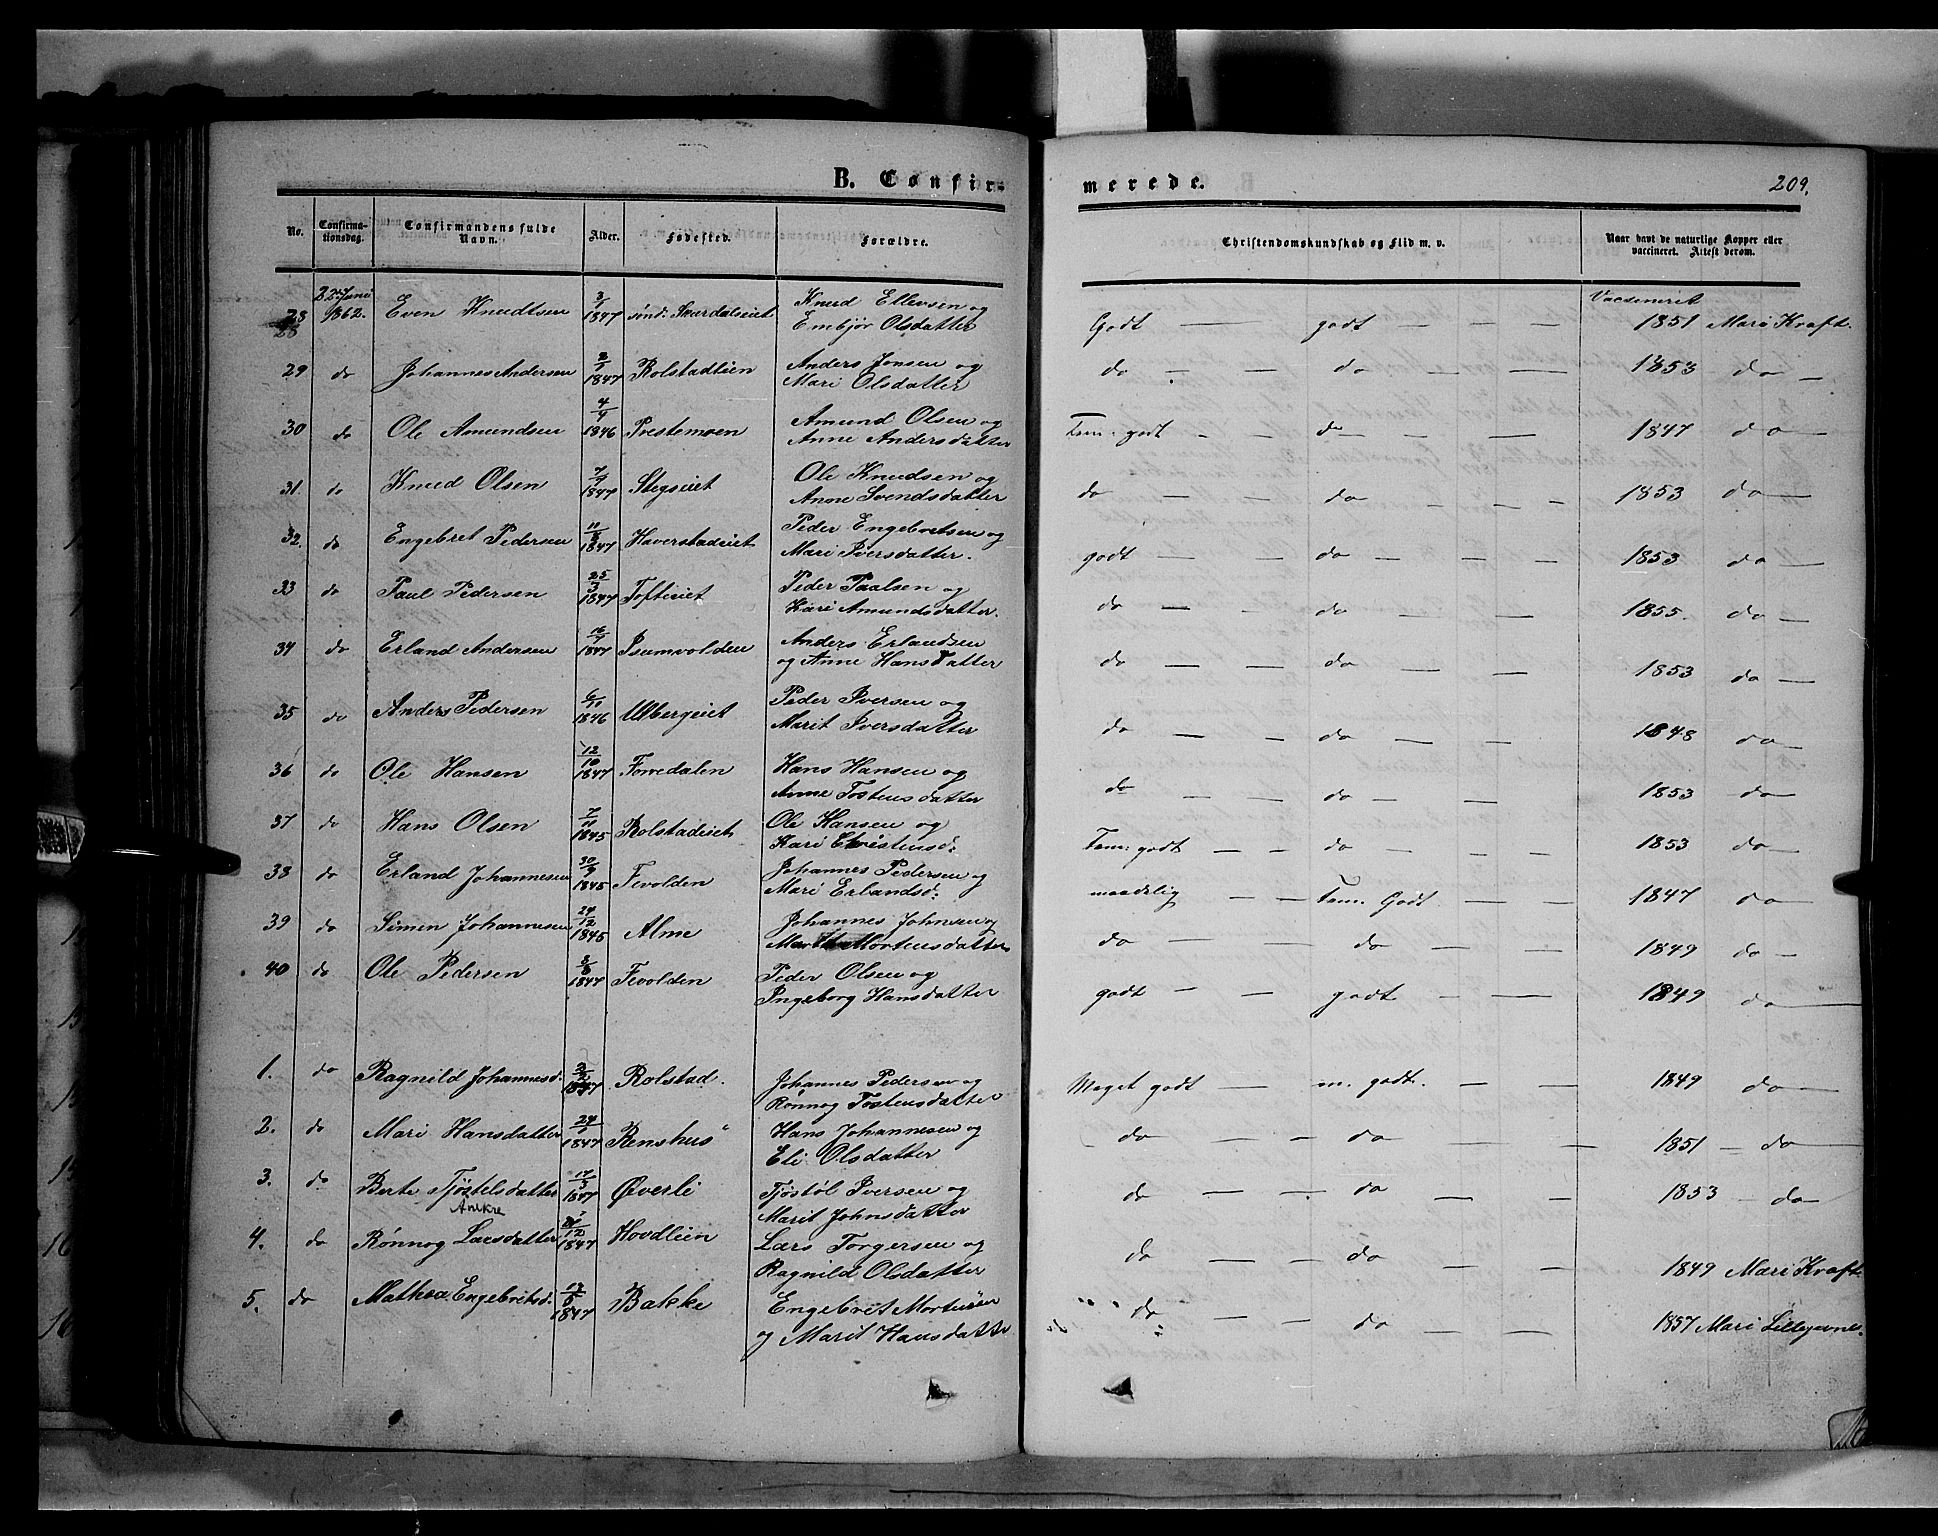 B. Confir-
merede.
209.
No.
Confirma-
tionsdag.
Confirmandens fulde
Navn.
Alder.
Fødested.
Forældre.
Christendomskundskab og Flid m. v.
Naar havt de naturlige Kopper eller
vaccineret. Attest derom.
28 22 Juni 1862. Even Knudtsen 3/1 1847 sönd: Skurdalseiet Knud Ellevsen og
28 Embjör Olsdatter Godt — godt — — — Vacsineret 1851 Mari Kraft.
29 do Johannes Andersen 2/7 1847 Rolstadlien Anders Jonsen og
Mari Olsdatter do — — do — — 1853 do —
30 do Ole Amundsen 4/9 1846 Prestemoen Amund Olsen og
Anne Andersdatter Tem. godt — — do — — 1847 do —
31. do Knud Olsen 7/7 1847 Stegseiet Ole Knudsen og
Anne Svendsdatter do — — do — — 1853 do —
32. do Engebret Pedersen 11/8 1847 Haverstadeiet Peder Engebretsen og
Mari Iversdatter. godt — — do — — 1853 do —
33 do Paul Pedersen 25/3 1847 Tofteeiet Peder Paalsen og
Kari Amundsdatter. do — — do — — 1855. do —
34 do Erland Andersen 16/7 1847 Isumvolden Anders Erlandsen
og Anne Hansdatter do — — do — — 1853 do —
35 do Anders Pedersen 6/11 1846 Ulbergeiet Peder Iversen og
Marit Iversdatter do — — do — — 1848 do —
36 do Ole Hansen 12/10 1847 Forredalen Hans Hansen og
Anne Tostensdatter do — — do — — 1853 do —
37 do Hans Olsen 7/11 1845 Rolstadeiet Ole Hansen og
Kari Christensd: Tem: godt — — do — — 1853 do —
38 do Erland Johannesen 30/9 1845 Fevolden Johannes Pedersen og
Mari Erlandsd: maadelig — — Tem. Godt — — 1847 do —
39 do Simen Johannesen 24/12 1845 Alme Johannes Johnsen og
Marthe Mortensdatter do — — do — — 1849 do —
40 do Ole Pedersen 3/8 1847 Fevolden Peder Olsen og
Ingeborg Hansdatter godt — — godt — — 1849 do —
1. do Ragnild Johannesd: 3/2 1847 Rolstad. Johannes Pedersen og
Rønnog Tostensdatter Meget godt — m. godt. — — 1849 do —
2. do Mari Hansdatter 24/1 1847 Renshus Hans Johannesen og
Eli Olsdatter do — — do — — 1851 — do
3. do Berte Tjöstelsdatter 17/3 1847 Øverli Tjöstöl Iversen og
Marit Johnsdatter do — — do — — 1853 — do
4. do Rønnog Larsdatter 21/12 1847 Hovdlien Lars Torgersen og
Ragnild Olsdatter do — — do — — 1849 Mari Kraft
5. do Mathea Engebretsd. 13/5 1847 Bakke Engebret Mortensen
og Marit Hansdatter do — — do — — 1857 Mari Lillegevnes.